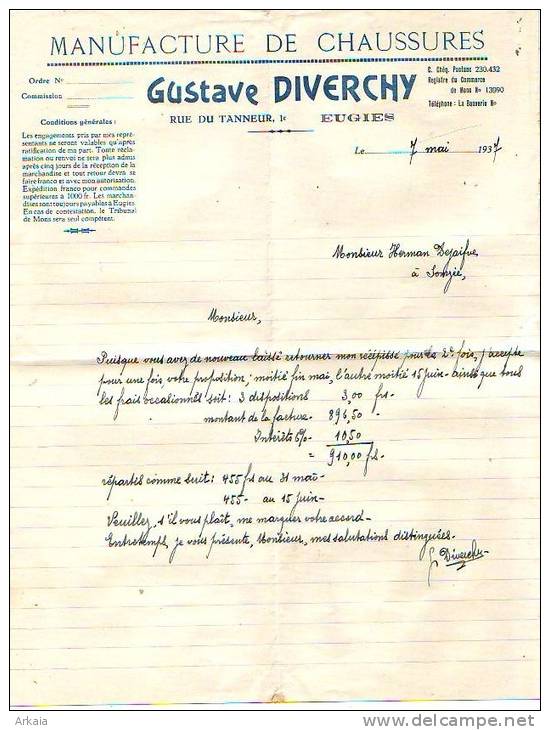 MANUFACTURE DE CHAUSSURES
Ordre No
Commission
Gustave DIVERCHY
C. Chèq. Postaux 230.432
Registre du Commerce
de Mons No 13090
Téléphone: La Bouverie No
RUE DU TANNEUR, 1c EUGIES
Conditions générales:
Les engagements pris par mes repré-
sentants ne seront valables qu'après
ratification de ma part. Toute récla-
mation ou renvoi ne sera plus admis
après cinq jours de la réception de la
marchandise et tout retour devra se
faire franco et avec mon autorisation.
Expédition franco pour commandes
supérieures à 1000 fr. Les marchan-
dises sont toujours payables à Eugies
En cas de contestation, le Tribunal
de Mons sera seul compétent.
Le 7 mai 1937
Monsieur Herman Dejaifve
à Somzée
Monsieur,
Puisque vous avez de nouveau laissé retourner mon récépissé pour la 2e fois, j'accepte
pour une fois, votre proposition; moitié fin mai, l'autre moitié 15 juin- ainsi que tous
les frais occasionnés soit: 3 dispositions 3,00 frs.
montant de la facture- 896,50-
Intérêts 6%- 10,50
= 910,00 frs.
répartis comme suit: 455 frs au 31 mai-
455- au 15 juin-
Veuillez, s'il vous plait, me marquer votre accord-
Entretemps, je vous présente, Monsieur, mes salutations distinguées.
G Diverchy
Arkaia
www.delcampe.net